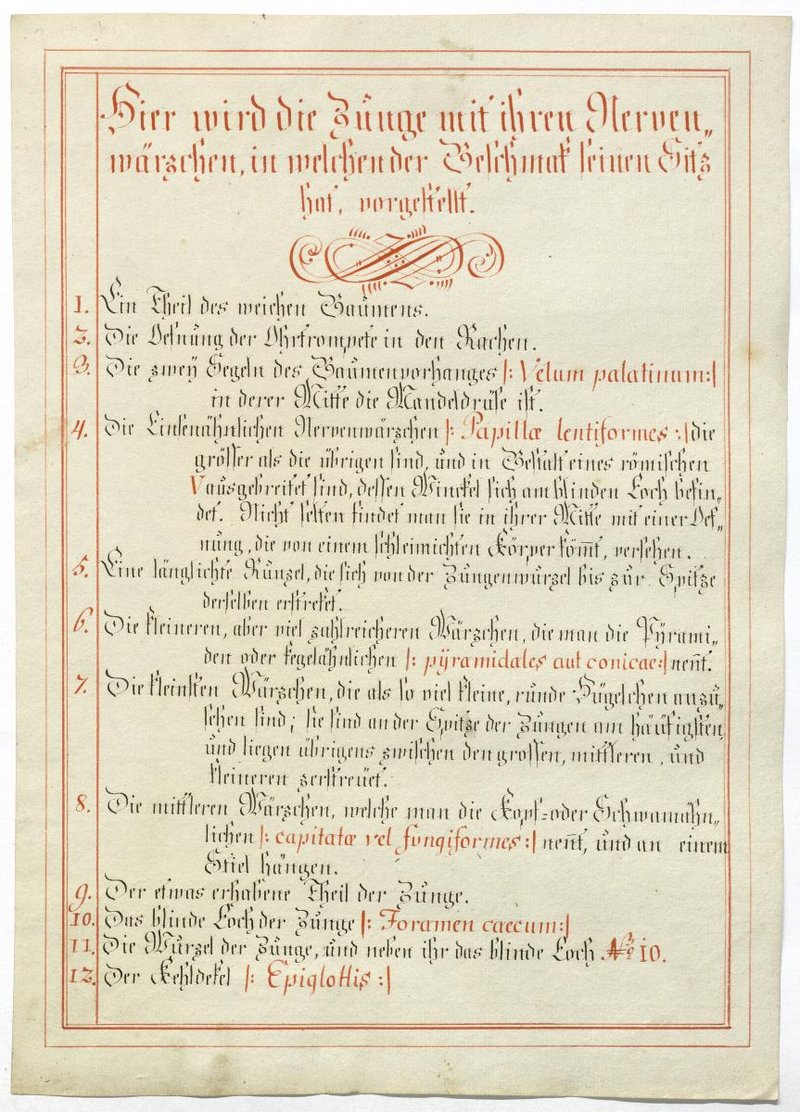 Hier wird die Zunge mit ihren Nerven„
wärzchen, in welchen der Geschmak seinen Sitz
hat, vorgestellt.
1. Ein Theil des weichen Gaumens.
2. Die Oefnung der Ohrtrompete in den Rachen.
3. Die zweÿ Segeln des Gaumenvorhanges |: Velum palatinum :|
in derer Mitte die Mandeldrüse ist.
4. Die Linsenähnlichen Nervenwärzchen |: Papillæ lentiformes :| die
grösser als die übrigen sind, und in Gestalt eines römischen
V ausgebreitet sind, dessen Winckel sich am blinden Loch befin„
det. Nicht selten findet man sie in ihrer Mitte mit einer Oef„
nung, die von einem schleimichten Körper kömmt, versehen.
5. Eine länglichte Runzel, die sich von der Zungenwurzel bis zur Spitze
derselben erstreket.
6. Die kleineren, aber viel zahlreicheren Wärzchen, die man die Pÿrami„
den oder kegelähnlichen |: pÿramidales aut conicae :| nent̅.
7. Die kleinsten Wärzchen, die als so viel kleine, runde Hügelchen anzu„
sehen sind; sie sind an der Spitze der Zungen am häufigsten,
und liegen übrigens zwischen den grossen, mittleren, und
kleineren zerstreuet.
8. Die mittleren Wärzchen, welche man die Kopf= oder Schwamähn„
lichen |: capitatæ vel fungiformes :| nen̅t, und an einem
Stiel hängen.
9. Der etwas erhabene Theil der Zunge.
10. Das blinde Loch der Zunge |: Foramen caecum :|
11. Die Wurzel der Zunge, und neben ihr das blinde Loch Nro 10.
12. Der Kehldekel |: Epiglottis :|